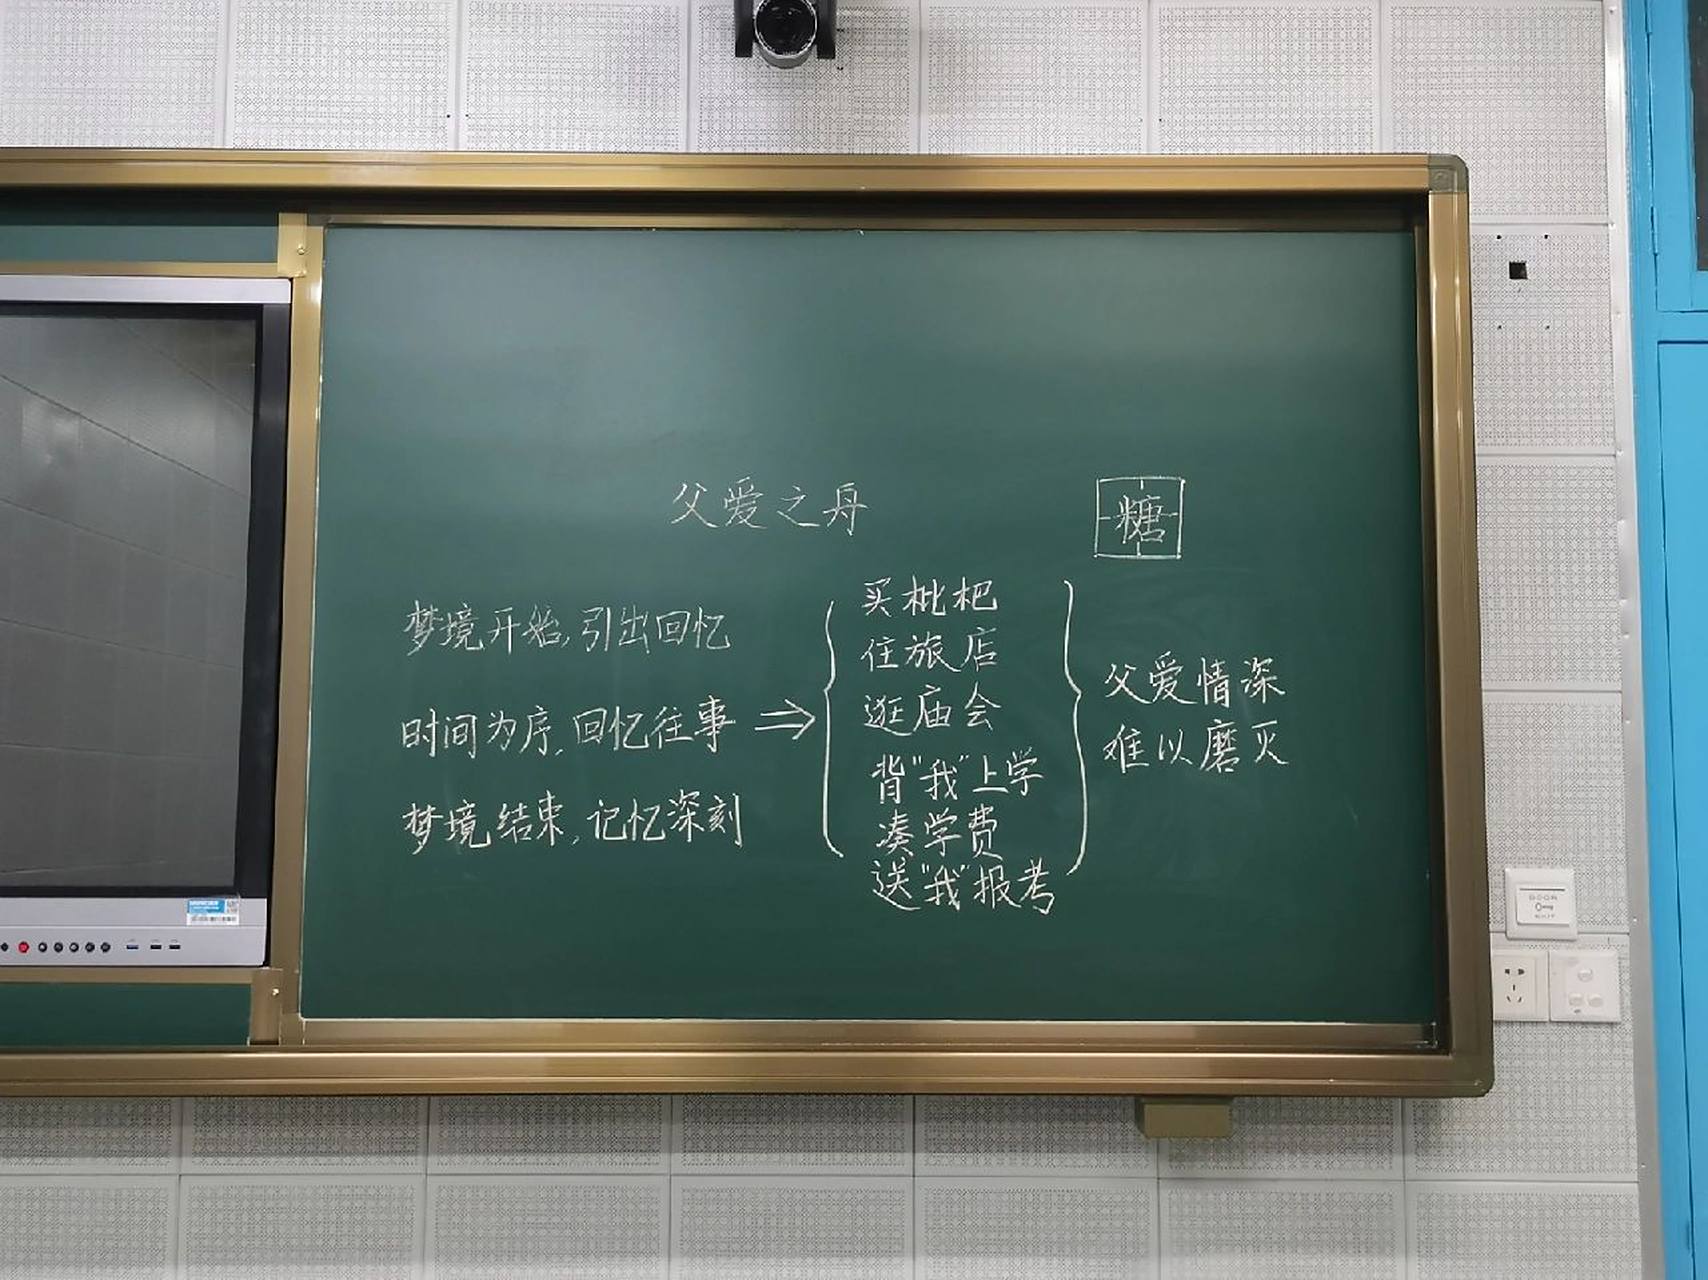 父爱之舟
糖
梦境开始,引出回忆
时间为序,回忆往事
梦境结束,记忆深刻
买枇杷
住旅店
逛庙会
背"我"上学
凑学费
送"我"报考
父爱情深
难以磨灭